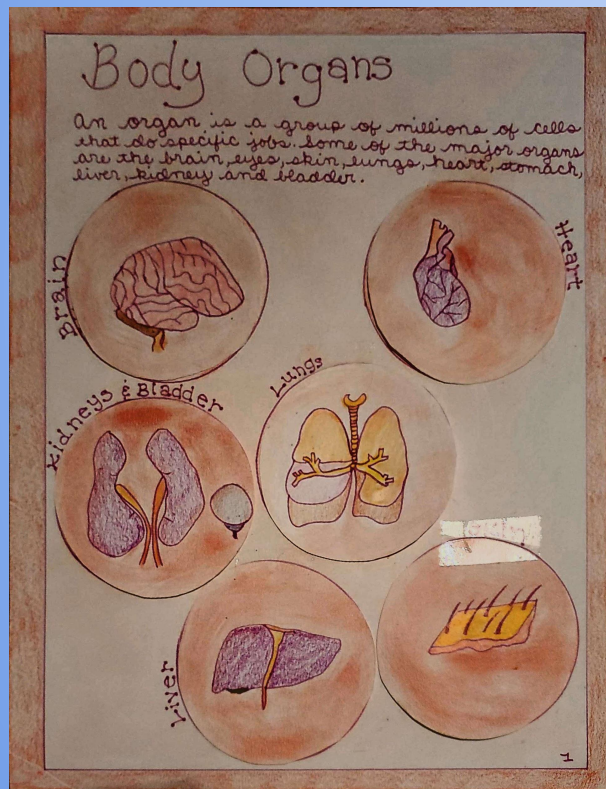 Body Organs
An organ is a group of millions of cells
that do specific jobs. Some of the major organs
are the brain, eyes, skin, lungs, heart, stomach,
liver, kidney and bladder.
Brain
Heart
Kidneys & Bladder
Lungs
Liver
1